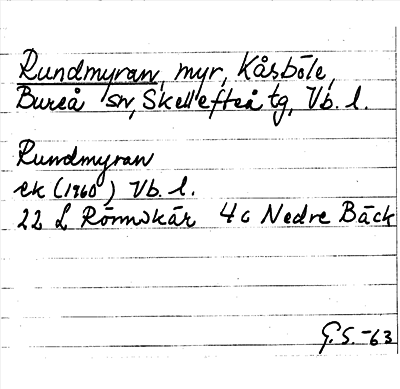 Rundmyran, myr, Kåsböle,
Bureå sn, Skellefteå tg, Vb. l.
Rundmyran
ek (1960) Vb. l.
22 L Rönnskär 4c Nedre Bäck
G.S. -63